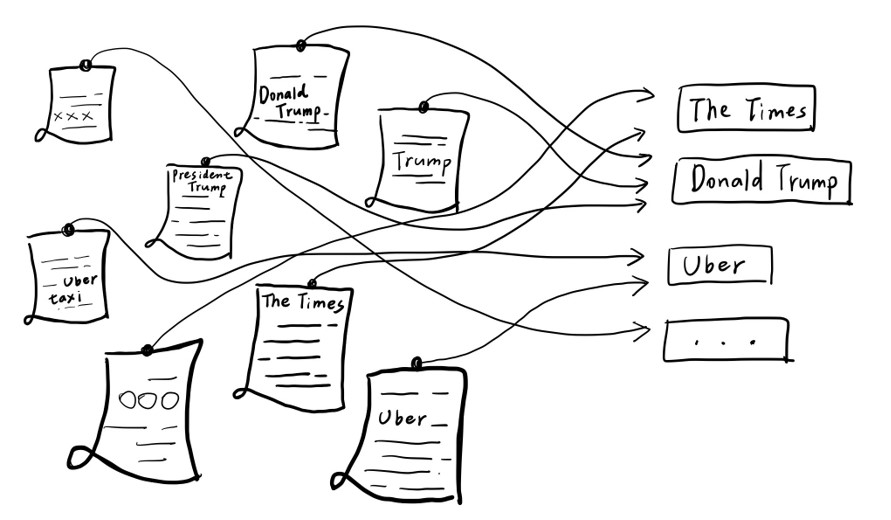 xxx
Donald
Trump
Trump
President
Trump
Uber
taxi
The Times
Uber
The Times
Donald Trump
Uber
...